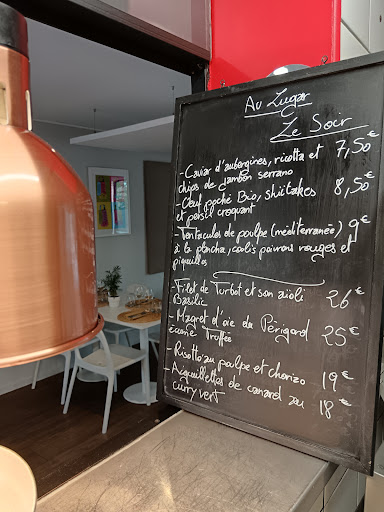 Au Lugar
Le Soir
- Caviar d'aubergines, ricotta et 7,50€
chips de jambon serrano
- Oeuf poché Bio, shiitakes 8,50€
et persil croquant
- Tentacules de poulpe (mediterranée) 9€
à la plancha, coulis poivrons rouges et
piquillos
- Filet de Turbot et son aïoli 26€
Basilic
- Magret d'oie du Périgord 25€
écume Truffée
- Risotto au poulpe et chorizo 19€
- Aiguillettes de canard au 18€
curry vert